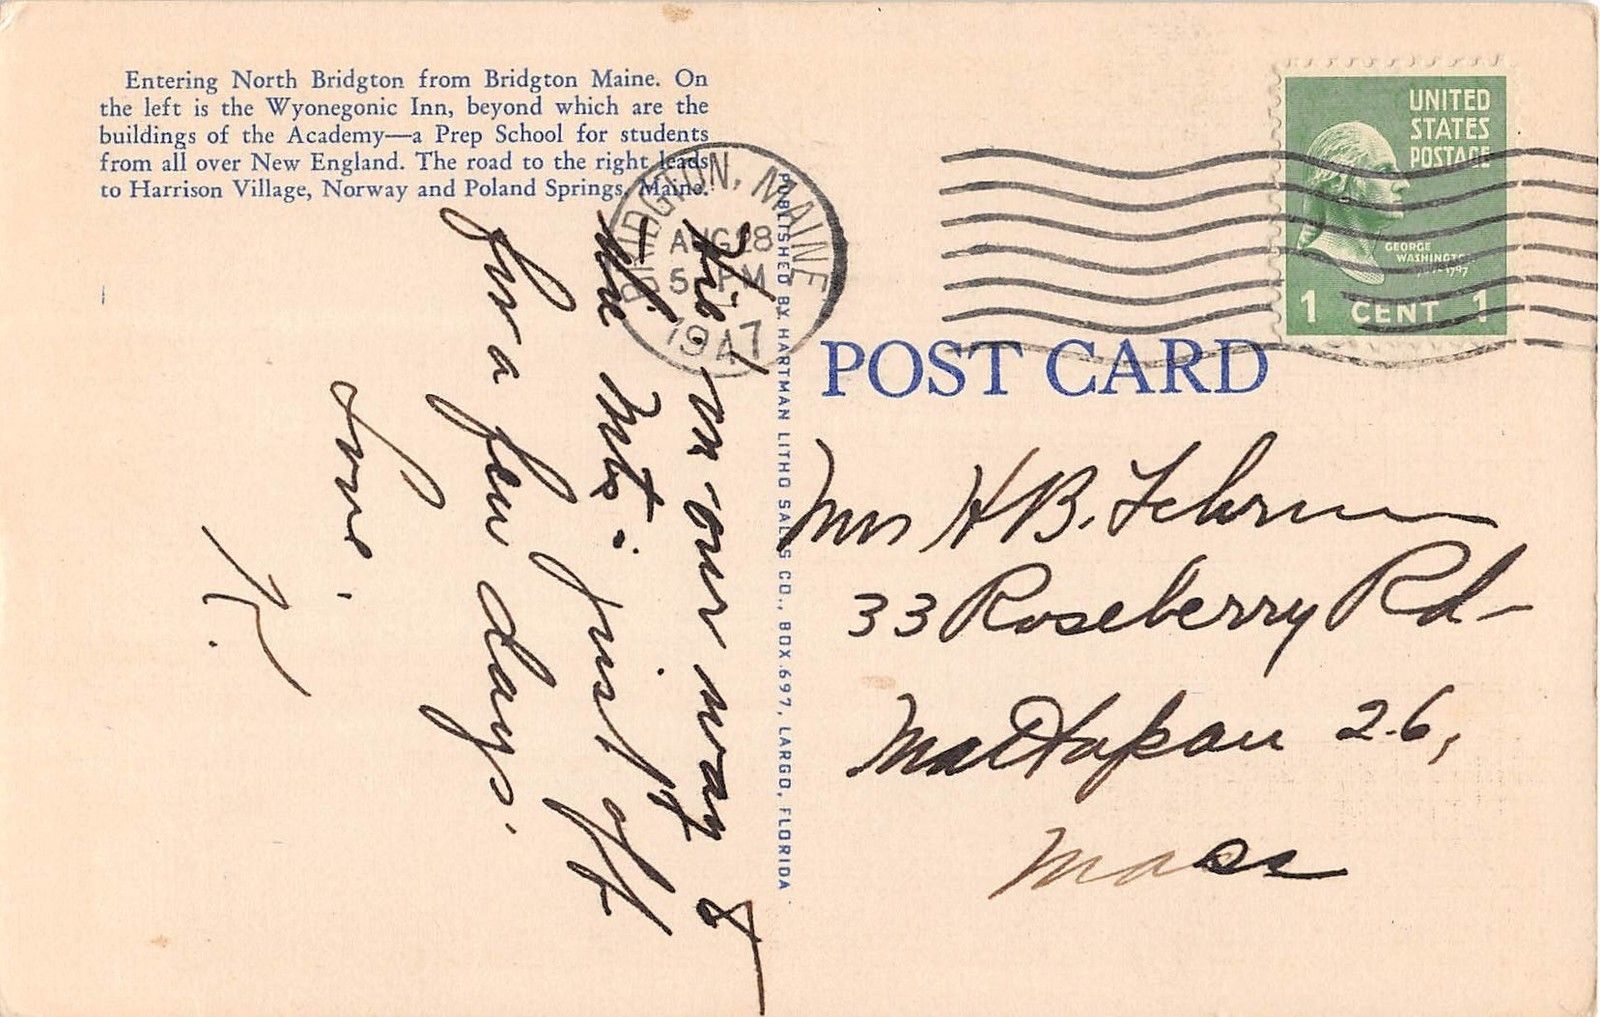 Entering North Bridgton from Bridgton Maine. On
the left is the Wyonegonic Inn, beyond which are the
buildings of the Academy—a Prep School for students
from all over New England. The road to the right leads
to Harrison Village, Norway and Poland Springs, Maine.
BRIDGTON, MAINE
AUG 28
5 - PM
1947
UNITED
STATES
POSTAGE
GEORGE
WASHINGTON
1 CENT 1
POST CARD
PUBLISHED BY HARTMAN LITHO SALES CO., BOX 697, LARGO, FLORIDA
Hi! on our way to
the Mts - just off
for a few days.
Love.
K.
Mrs H B. Fehrm
33 Roseberry Rd-
Mattapan 26,
Mass